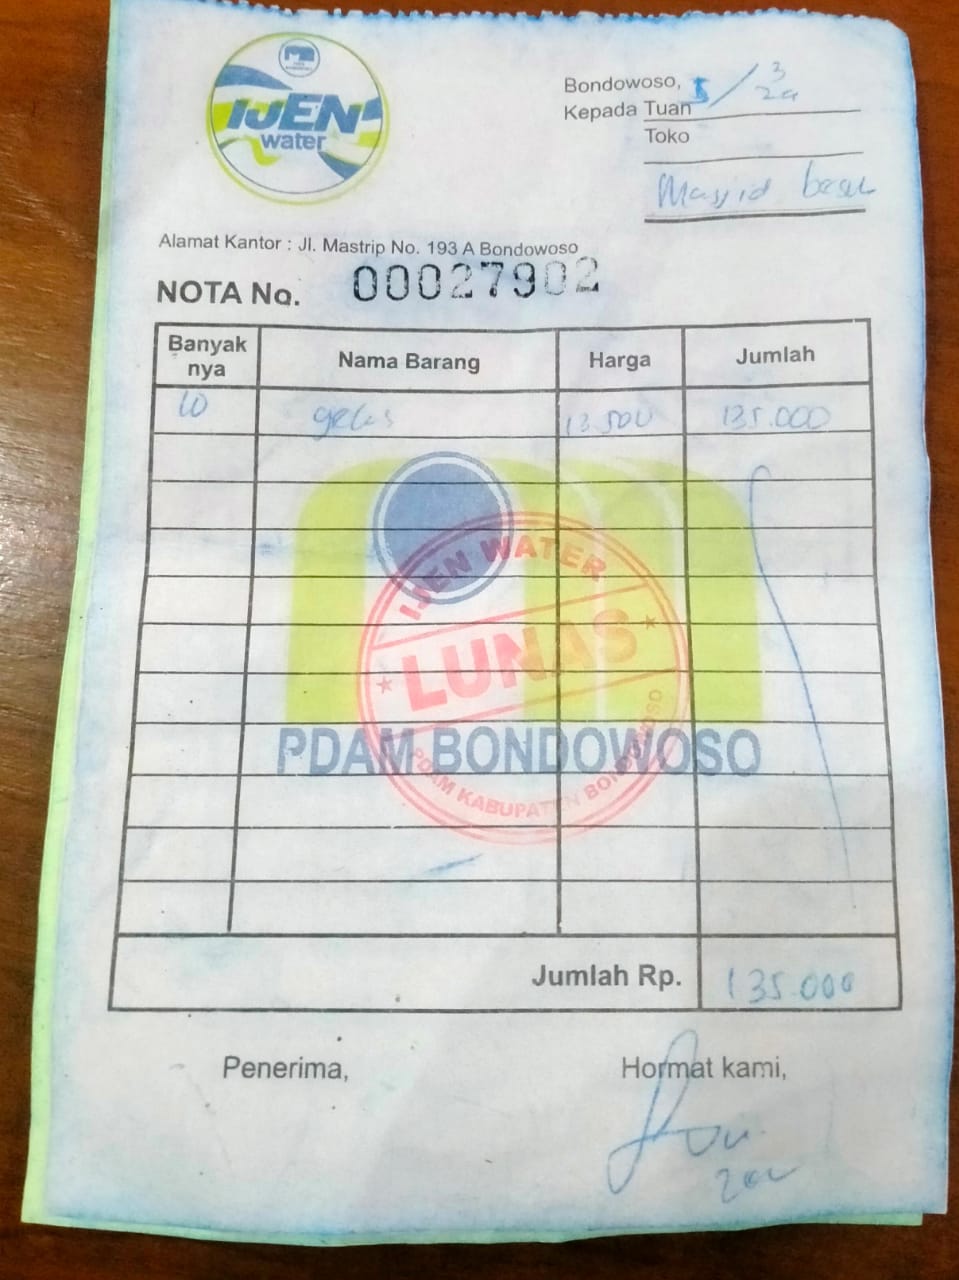 IJEN
water
Bondowoso, 5/3 24
Kepada Tuan
Toko
Masjid besar
Alamat Kantor : Jl. Mastrip No. 193 A Bondowoso
NOTA No. 00027902
Banyak nya Nama Barang Harga Jumlah
10 gelas 13.500 135.000
IJEN WATER
LUNAS
PDAM BONDOWOSO
PDAM KABUPATEN BONDOWOSO
Jumlah Rp. 135.000
Penerima, Hormat kami,